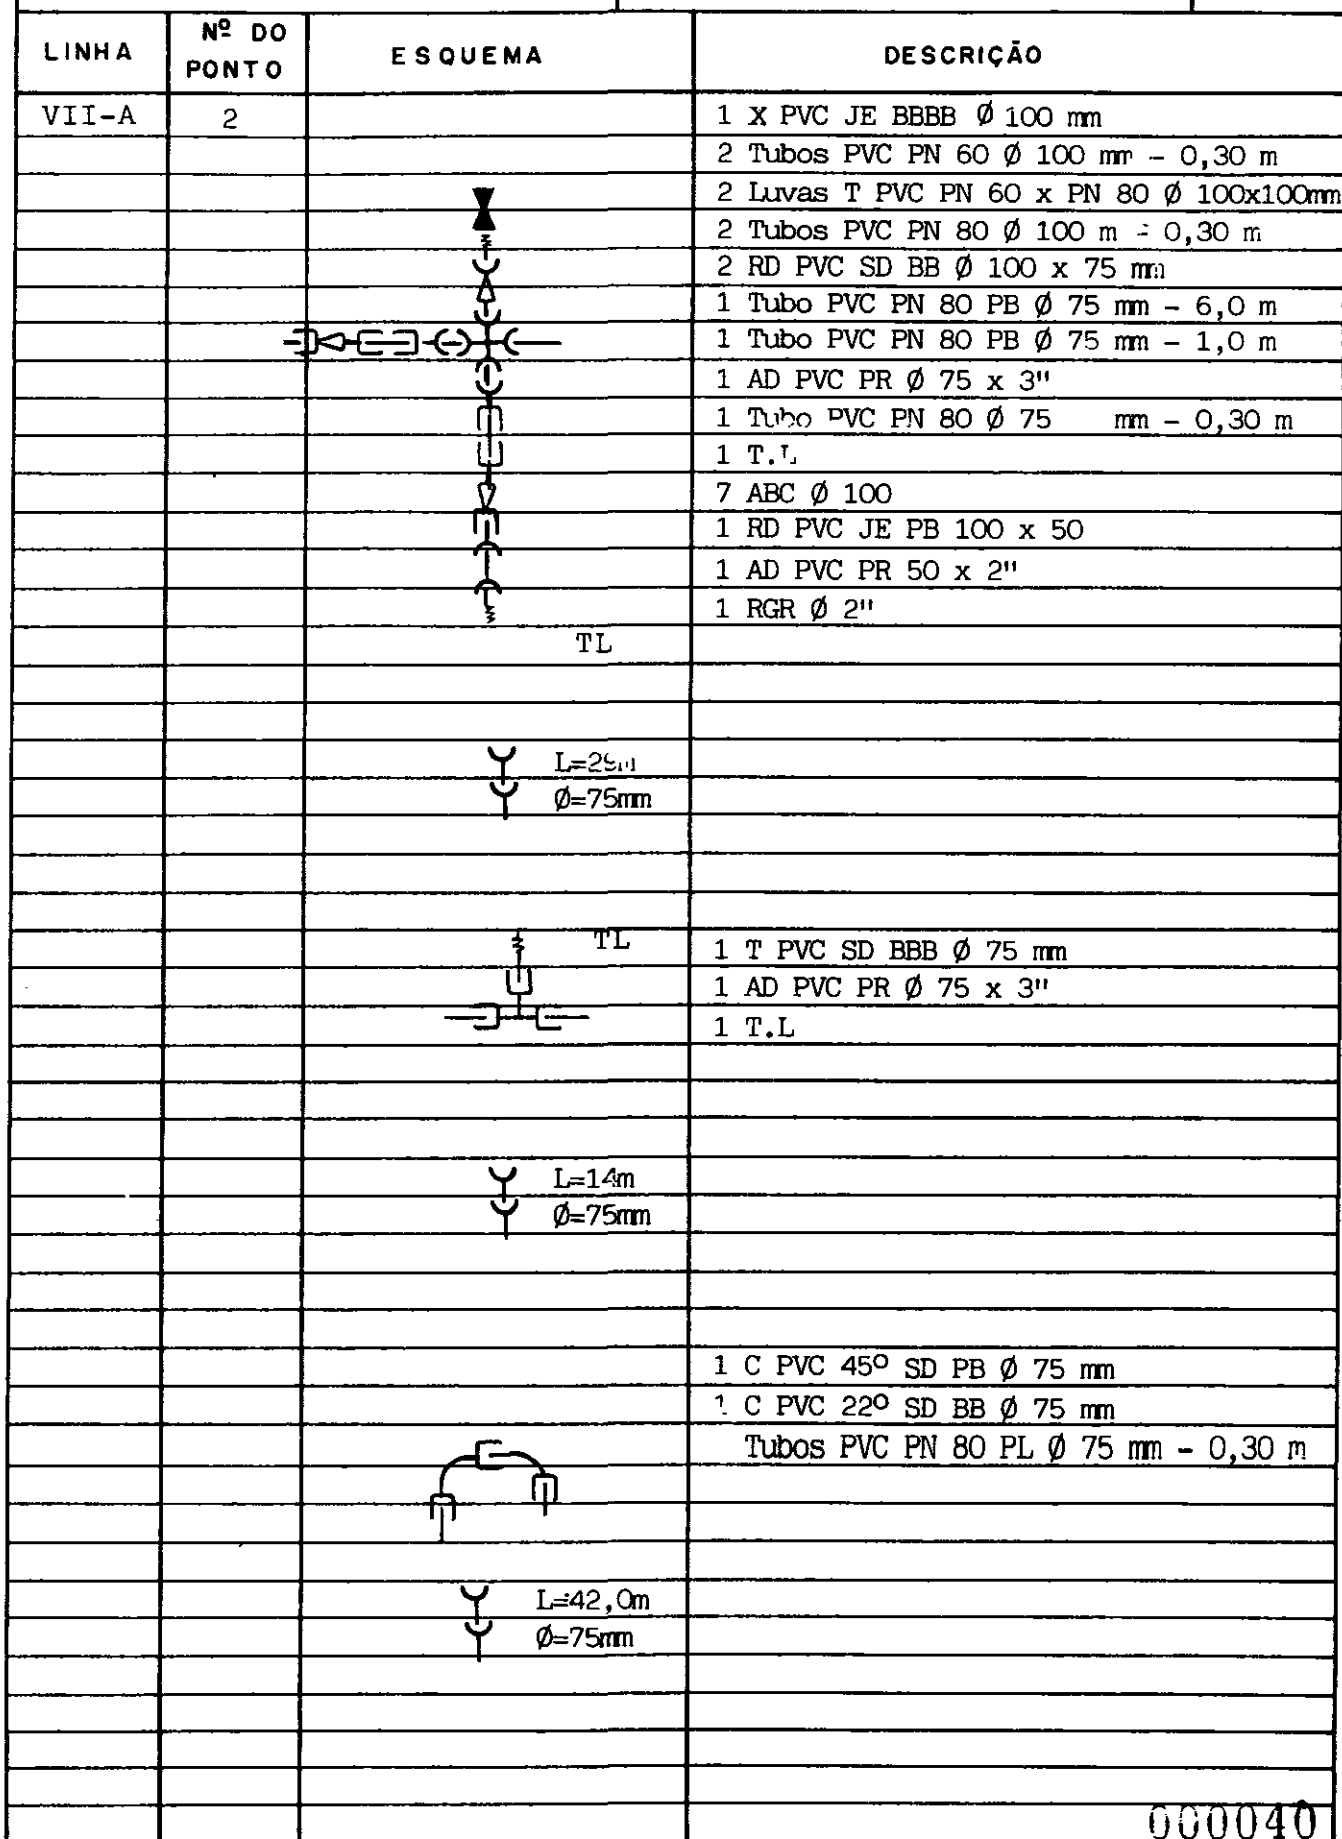 LINHA Nº DO PONTO ESQUEMA DESCRIÇÃO
VII-A 2 1 X PVC JE BBBB Ø 100 mm
2 Tubos PVC PN 60 Ø 100 mm - 0,30 m
2 Luvas T PVC PN 60 x PN 80 Ø 100x100mm
2 Tubos PVC PN 80 Ø 100 m - 0,30 m
2 RD PVC SD BB Ø 100 x 75 mm
1 Tubo PVC PN 80 PB Ø 75 mm - 6,0 m
1 Tubo PVC PN 80 PB Ø 75 mm - 1,0 m
1 AD PVC PR Ø 75 x 3"
1 Tubo PVC PN 80 Ø 75 mm - 0,30 m
1 T.L
7 ABC Ø 100
1 RD PVC JE PB 100 x 50
1 AD PVC PR 50 x 2"
1 RGR Ø 2"
TL
L=29m
Ø=75mm
TL 1 T PVC SD BBB Ø 75 mm
1 AD PVC PR Ø 75 x 3"
1 T.L
L=14m
Ø=75mm
1 C PVC 45º SD PB Ø 75 mm
1 C PVC 22º SD BB Ø 75 mm
Tubos PVC PN 80 PL Ø 75 mm - 0,30 m
L=42,0m
Ø=75mm
000040